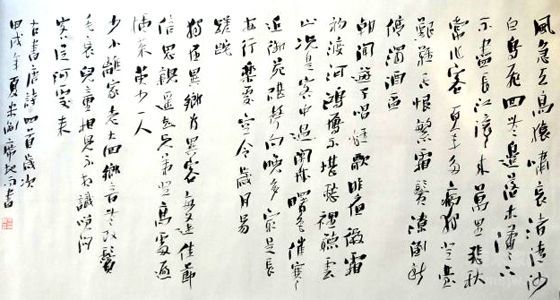 風急天高猿嘯哀渚清沙
白鳥飛回無邊落木蕭〻下
不盡長江滾〻來萬里悲秋
常作客百年多病獨登臺
艱難苦恨繁霜鬢潦倒新
停濁酒杯
朝聞遊子唱離歌昨夜微霜
初渡河鴻雁不堪愁裡聽雲
山況是客中過關城曙色催寒
近御苑砧聲向晚多莫是長
安行樂處空令歲月易
蹉跎
獨在異鄉為異客每逢佳節
倍思親遙知兄弟登高處遍
插茱萸少一人
少小離家老大回鄉音無改鬢
毛衰兒童相見不相識笑問
客從何處來
古書唐詩四首歲次
甲戌年夏朱席地而書